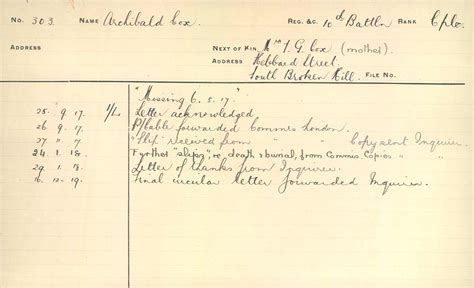 No. 303. NAME Archibald Cox. REG. &C. 10th Battln RANK Cpl.
ADDRESS NEXT OF KIN Mrs J. G. Cox (mother)
ADDRESS Hebbard Street.
South Broken Hill. FILE No.
"Missing 6.5.17."
25.9.17. 1/L Letter acknowledged
26.9.17. P/Cable forwarded Commrs London.
27 " " "Slip" received from " " Copy sent Inquirer.
24.1.18. Further "slips", re death & burial, from Commis. Copies " "
29.1.18. Letter of thanks from Inquirer
16.12.19. Final circular letter forwarded Inquirer